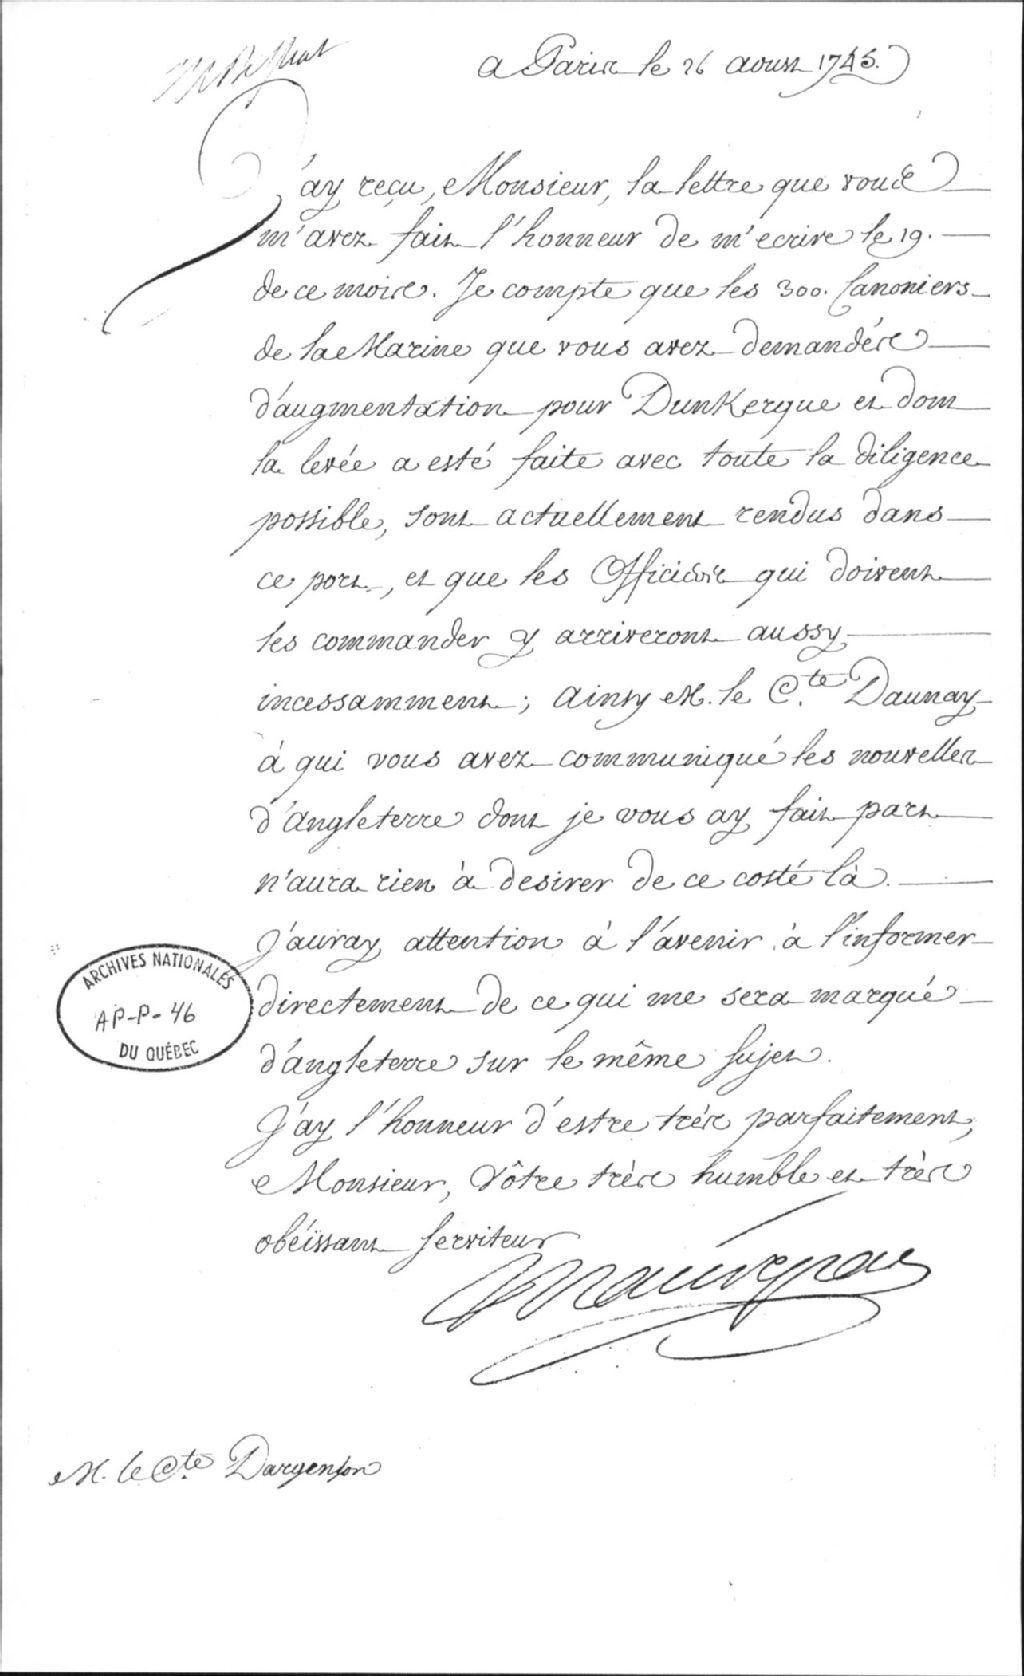 a Paris le 26 aoust 1745.
J'ay reçu, Monsieur, la lettre que vous
m'avez fait l'honneur de m'ecrire le 19.
de ce mois. Je compte que les 300. Canoniers
de la Marine que vous avez demandés
d'augmentation pour Dunkerque et dont
la levée a esté faite avec toute la diligence
possible, sont actuellement rendus dans
ce port, et que les Officiers qui doivent
les commander y arriveront aussy
incessamment; ainsy M. le Cte. Daunay
à qui vous avez communiqué les nouvelles
d'angleterre dont je vous ay fait part
n'aura rien à desirer de ce costé là.
J'auray attention à l'avenir à l'informer
directement de ce qui me sera marqué
d'angleterre sur le même sujet.
J'ay l'honneur d'estre très parfaitement,
Monsieur, Vôtre très humble et très
obéissant serviteur
Maurepas
M. le Cte. Dargenson
ARCHIVES NATIONALES
AP-P-46
DU QUÉBEC